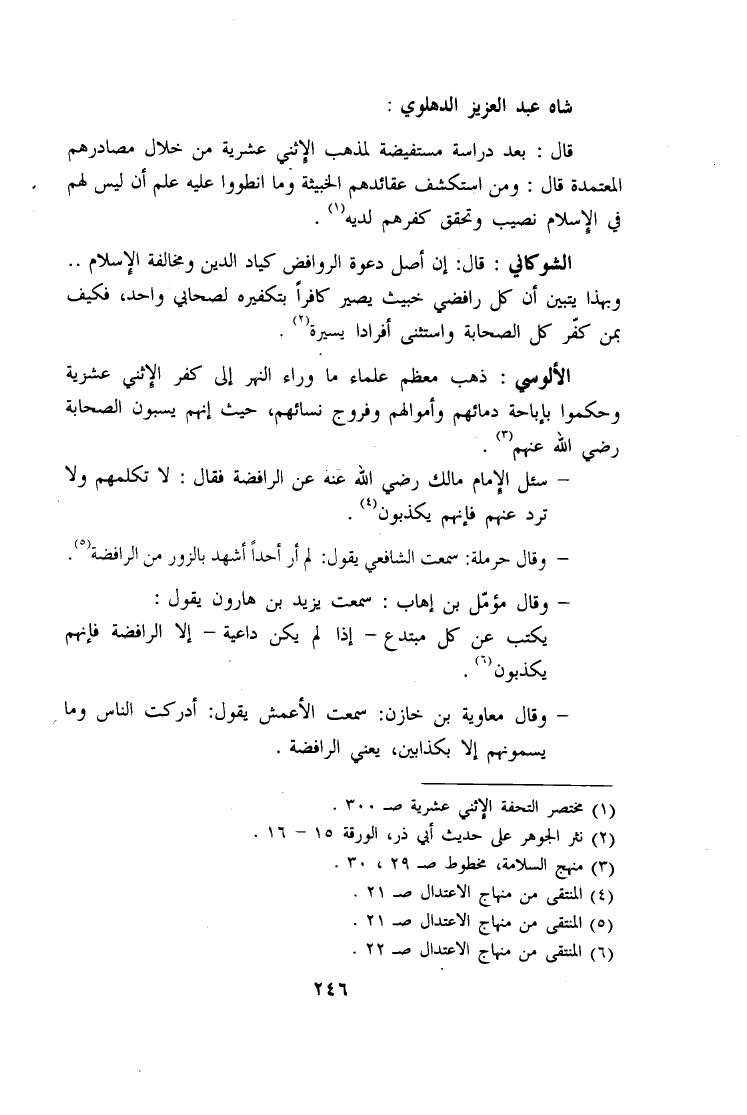 شاه عبد العزيز الدهلوي :
قال : بعد دراسة مستفيضة لمذهب الإثني عشرية من خلال مصادرهم
المعتمدة قال : ومن استكشف عقائدهم الخبيثة وما انطووا عليه علم أن ليس لهم
في الإسلام نصيب وتحقق كفرهم لديه(١) .
الشوكاني : قال: إن أصل دعوة الروافض كياد الدين ومخالفة الإسلام ..
وبهذا يتبين أن كل رافضي خبيث يصير كافراً بتكفيره لصحابي واحد، فكيف
بمن كفّر كل الصحابة واستثنى أفرادا يسيرة(٢) .
الألوسي : ذهب معظم علماء ما وراء النهر إلى كفر الإثني عشرية
وحكموا بإباحة دمائهم وأموالهم وفروج نسائهم، حيث إنهم يسبون الصحابة
رضي الله عنهم(٣) .
– سئل الإمام مالك رضي الله عنه عن الرافضة فقال : لا تكلمهم ولا
ترد عنهم فإنهم يكذبون(٤) .
– وقال حرملة: سمعت الشافعي يقول: لم أر أحداً أشهد بالزور من الرافضة(٥).
– وقال مؤمّل بن إهاب : سمعت يزيد بن هارون يقول :
يكتب عن كل مبتدع – إذا لم يكن داعية – إلا الرافضة فإنهم
يكذبون(٦) .
– وقال معاوية بن خازن: سمعت الأعمش يقول: أدركت الناس وما
يسمونهم إلا بكذابين، يعني الرافضة .
(١) مختصر التحفة الإثني عشرية صـ ٣٠٠ .
(٢) نثر الجوهر على حديث أبي ذر، الورقة ١٥ – ١٦ .
(٣) منهج السلامة، مخطوط صـ ٢٩ ، ٣٠ .
(٤) المنتقى من منهاج الاعتدال صـ ٢١ .
(٥) المنتقى من منهاج الاعتدال صـ ٢١ .
(٦) المنتقى من منهاج الاعتدال صـ ٢٢ .
٢٤٦